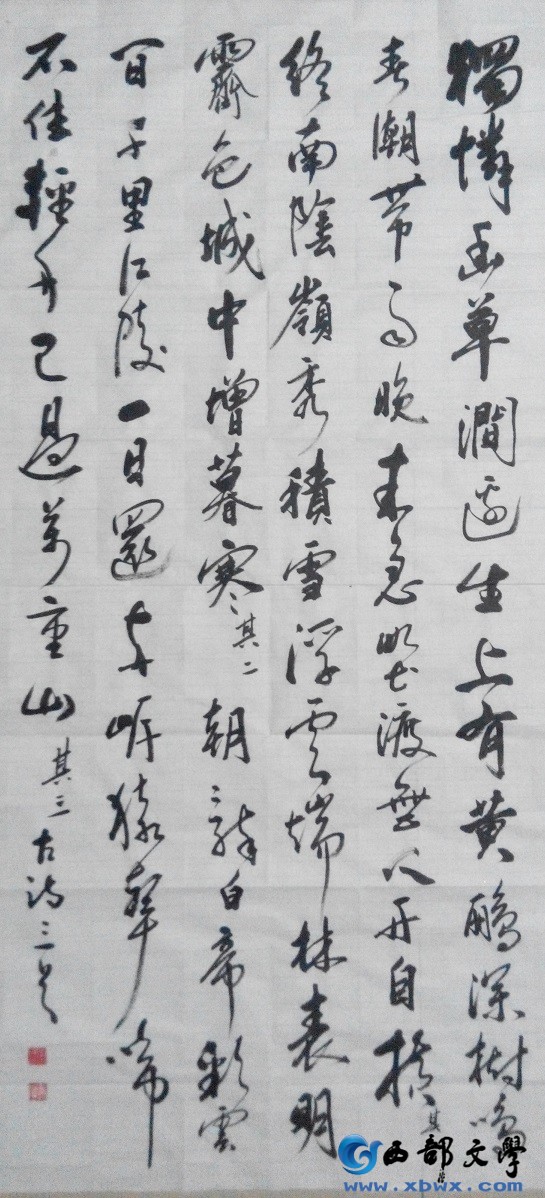 獨憐幽草澗邊生上有黄鸝深樹鳴
春潮帶雨晚来急野渡無人舟自横其
終南陰嶺秀積雪浮雲端林表明
霽色城中增暮寒其二朝辭白帝彩雲
間千里江陵一日還兩岸猿聲啼
不住輕舟已過萬重山其三古詩三首
西部文學
www.xbwx.com